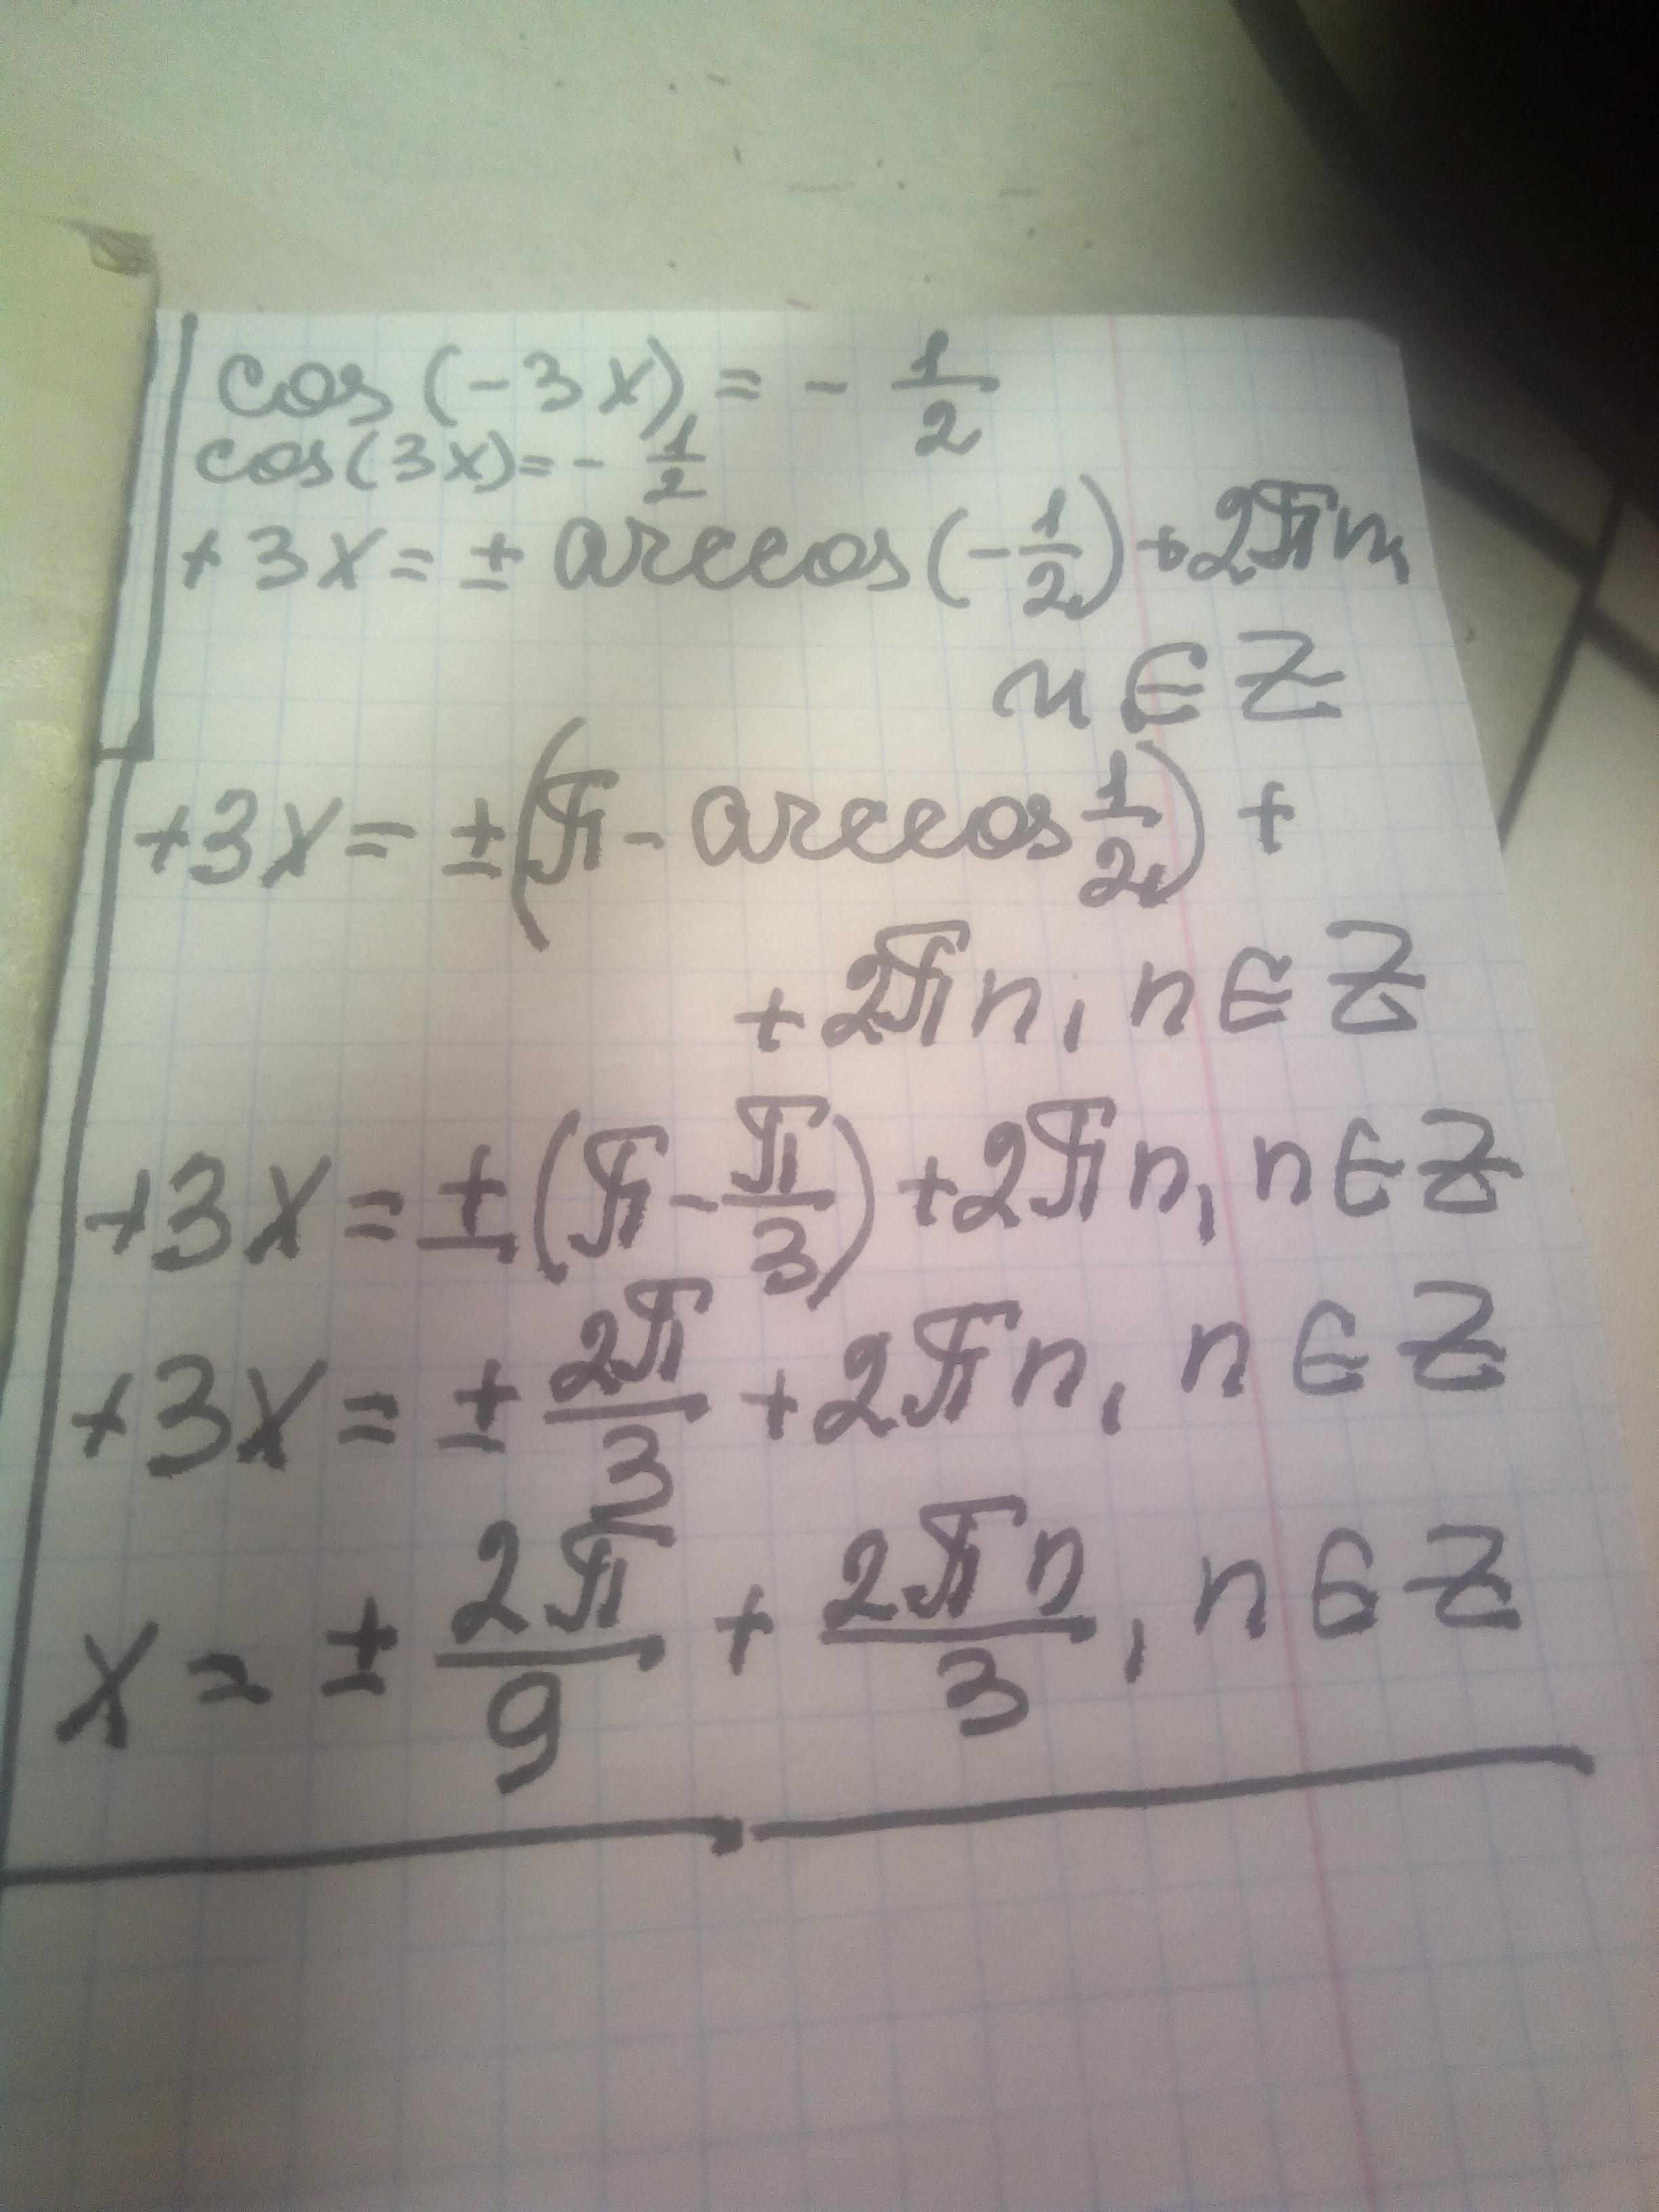 cos(-3x) = - 1/2
cos(3x) = - 1/2
+3x = ± arccos(-1/2) + 2πn,
n ∈ Z
+3x = ±(π - arccos 1/2) +
+ 2πn, n ∈ Z
+3x = ±(π - π/3) + 2πn, n ∈ Z
+3x = ± 2π/3 + 2πn, n ∈ Z
x = ± 2π/9 + 2πn/3, n ∈ Z